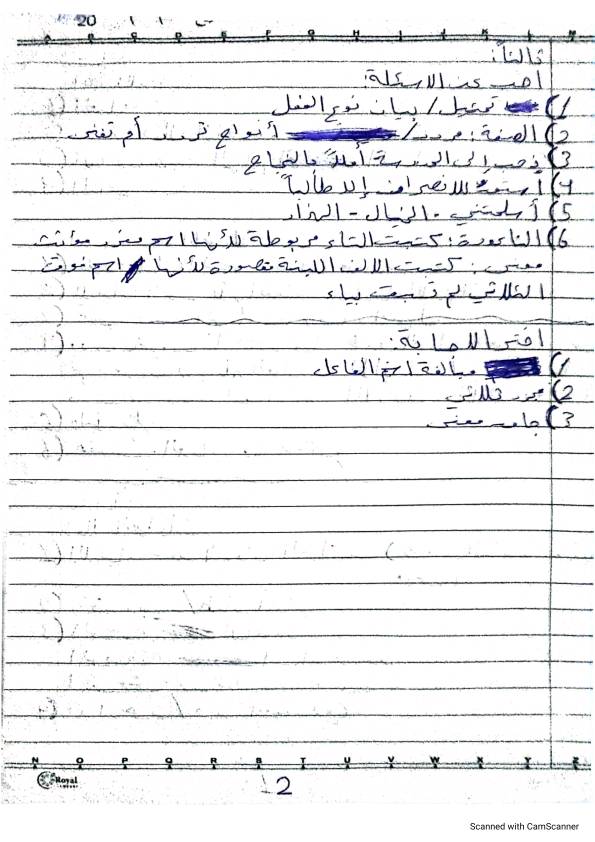 20
N O P Q R S T U V W X Y Z
ثالثاً:
اجب عن الاسئلة:
1) تمثيل / بيان نوع الفعل
2) الصفة: / أمواج تردد أم تفنى
3) يذهب إلى المدرسة أملاً بالنجاح
4) للانصراف إلا طالباً
5) أسلمتني - الخيال - الهزار
6) الناعورة: كتبت التاء مربوطة لأنها اسم مفرد مؤنث
معنى: كتبت الالف اللينة مقصورة لأنها اسم فوق
الثلاثي لم تسبق بياء
اختر الاجابة:
1) مبالغة اسم الفاعل
2) مجرد ثلاثي
3) جامد معنى
N O P Q R S T U V W X Y Z
Royal
2
Scanned with CamScanner